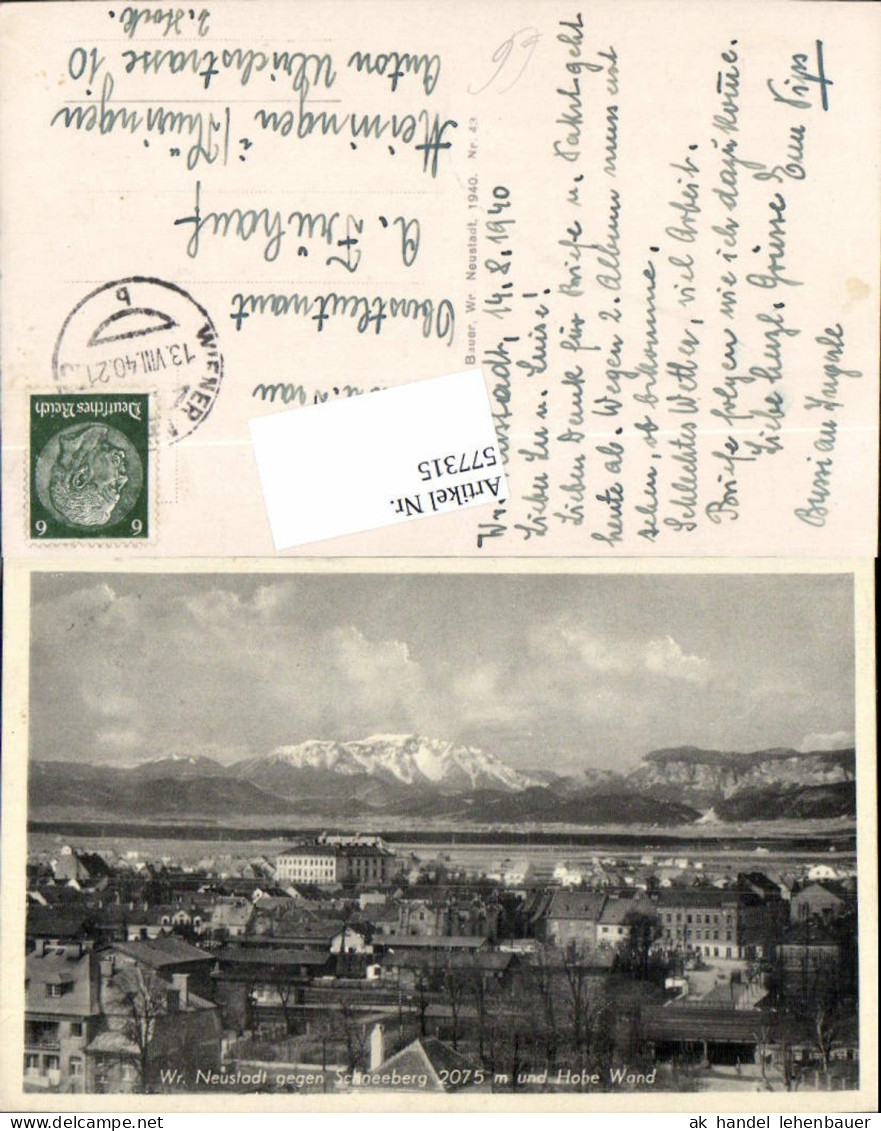 99
Wr. Neustadt, 14.8.1940
Lieber Lu u. Luise!
Lieben Dank für Briefe u. Paket geht
heute ab. Wegen 2. Album muss erst
sehen, ob bekomme.
Schlechtes Wetter, viel Arbeit.
Briefe folgen wie ich dazu komme.
Liebe herzl. Grüsse Euer Pips
Bussi an
Bauer, Wr. Neustadt, 1940. Nr. 43
WIENER
13.VIII.40.21
b
Deutsches Reich
6 6
Oberstleutnant
A. Frühauf
Meiningen i/Thüringen
Anton Ulrichstrasse 10
2. Stock.
Artikel Nr.
577315
Wr. Neustadt gegen Schneeberg 2075 m und Hohe Wand
ak handel lehenbauer